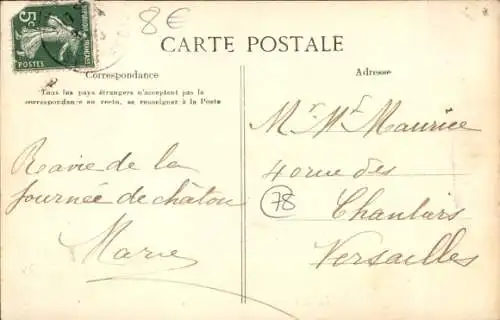 5c
POSTES
8€
CARTE POSTALE
Correspondance
Tous les pays étrangers n'acceptent pas la
correspondance au recto, se renseigner à la Poste
Ravie de la
journée de châtou
Marie
Adresse
Mr Mt Maurice
40 rue des
Chantiers
78
Versailles